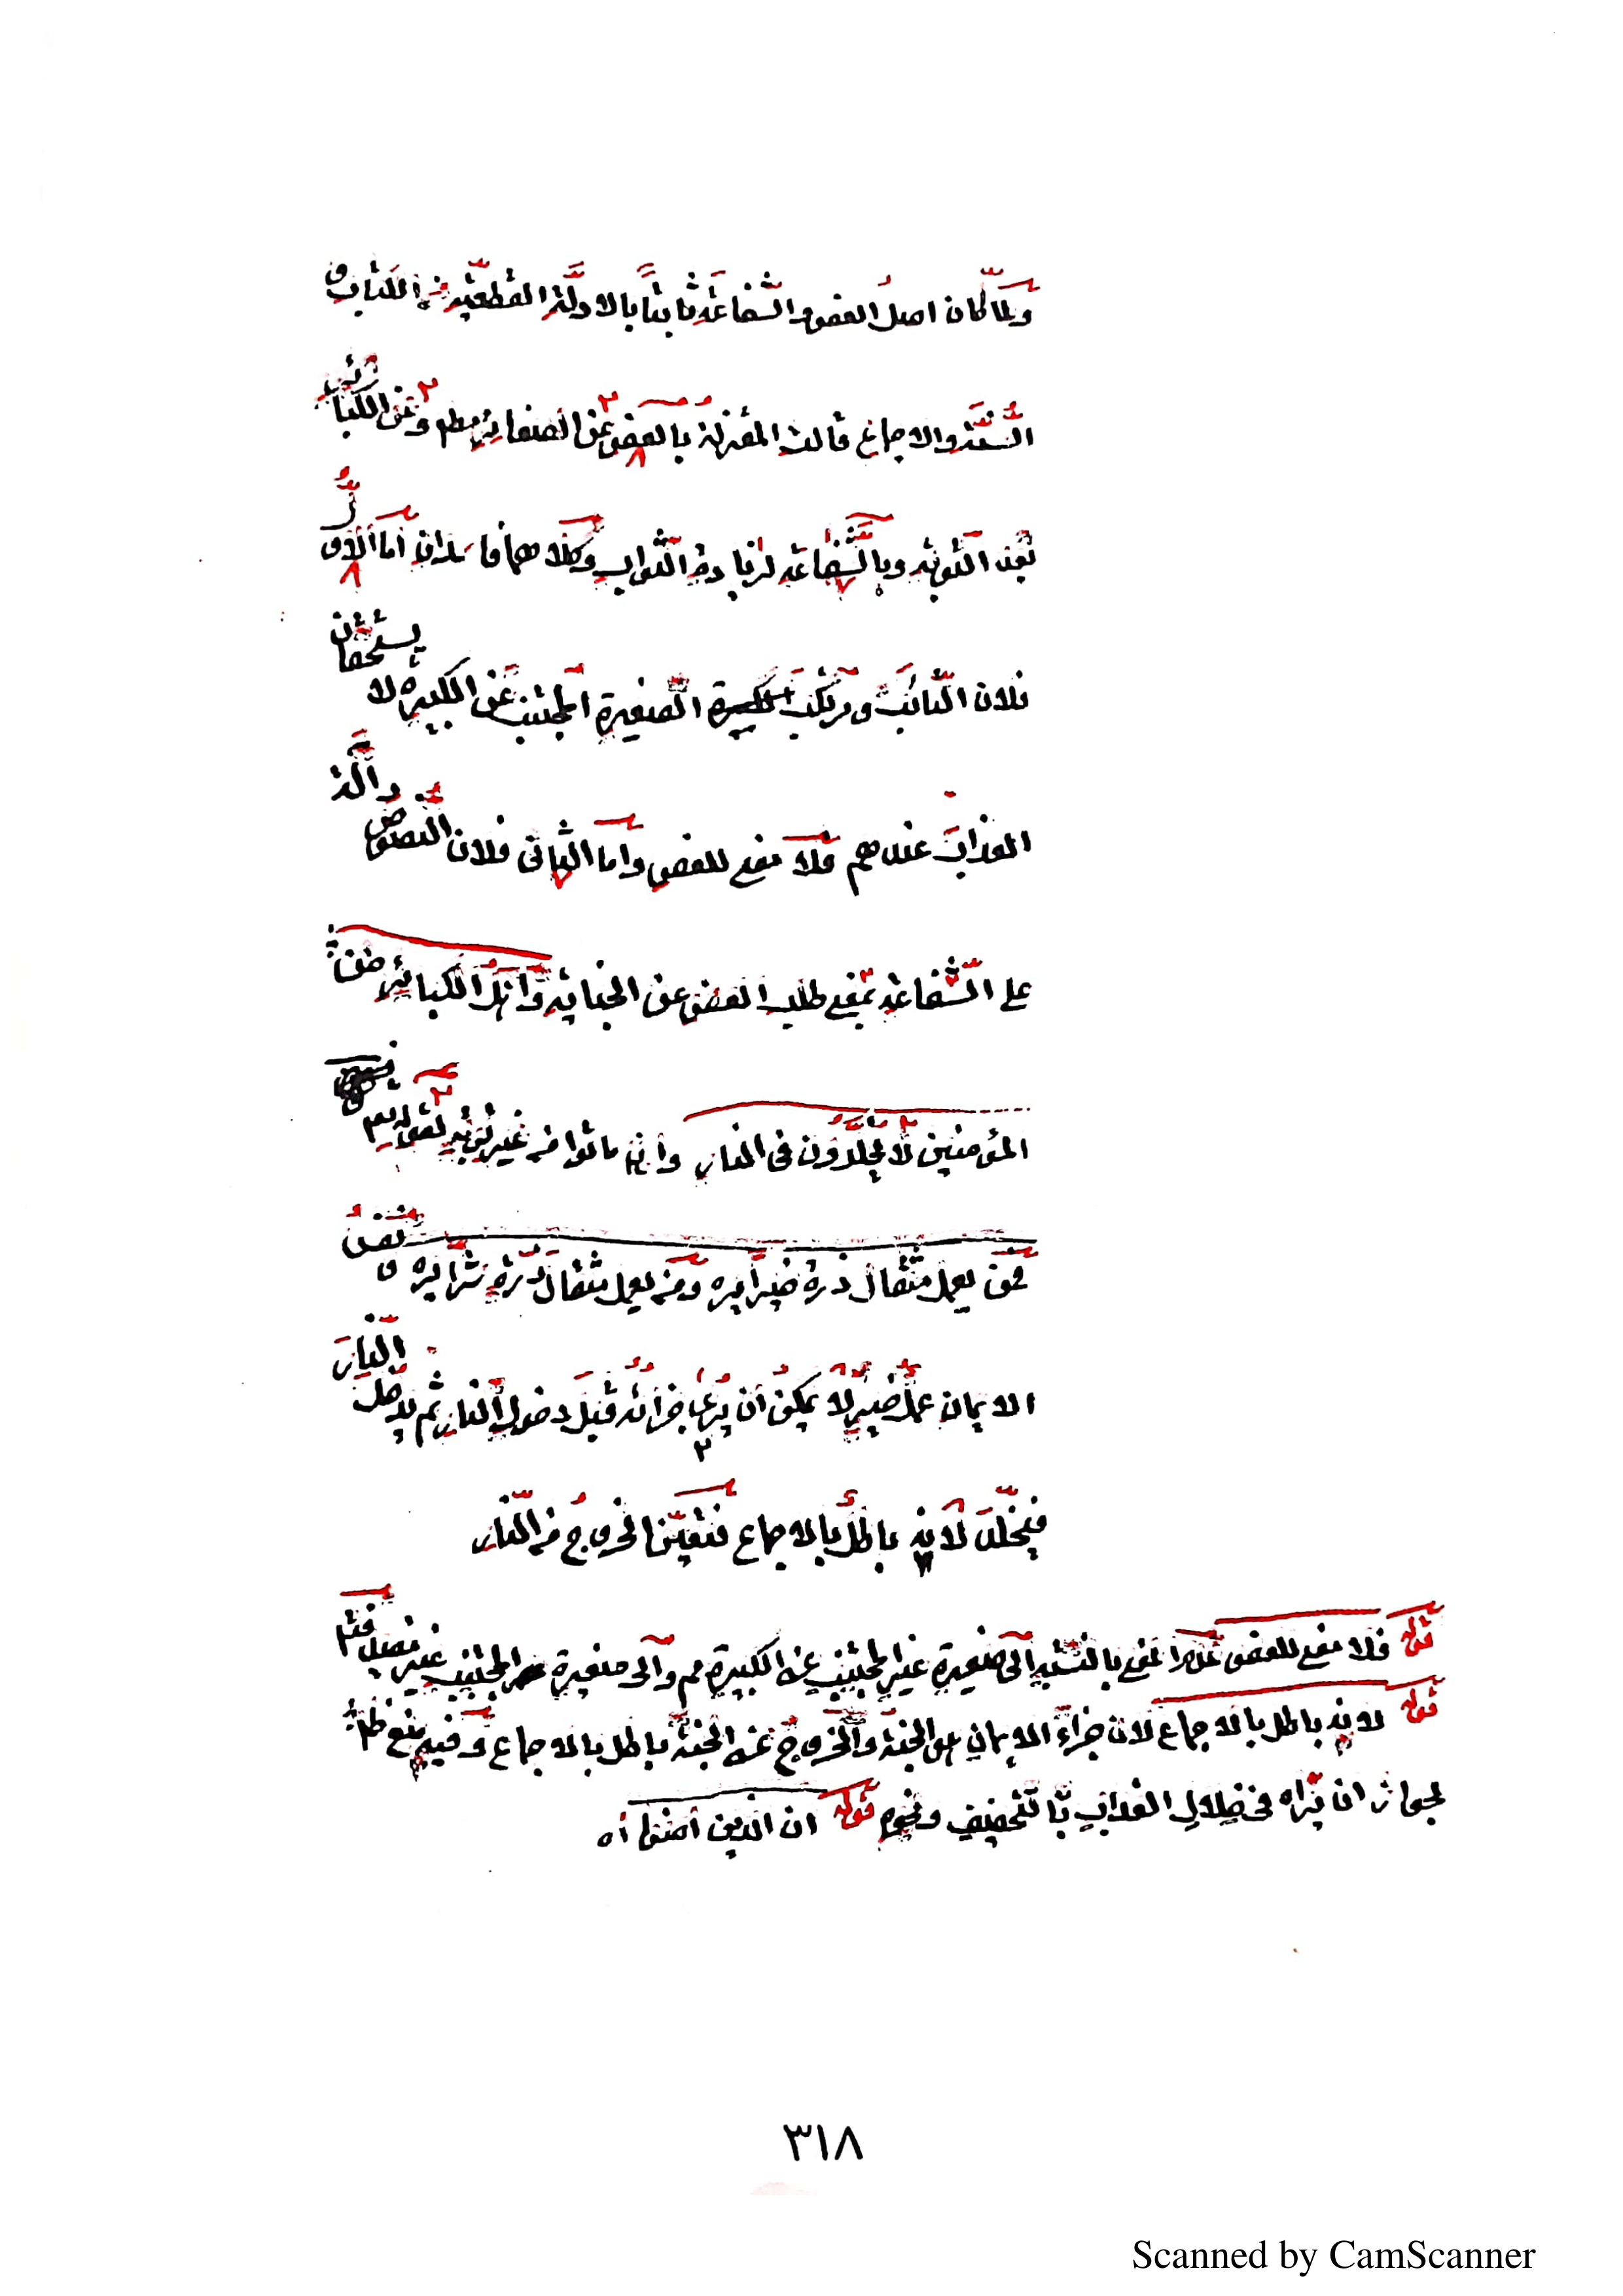 ولما كان اصل العفو والشفاعة ثابتا بالادلة القطعية من الكتاب و
السنة والاجماع قالت المعتزلة بالعفو عن الصغائر مطم وعن الكبائر
بعد التوبة وبالشفاعة لزيادة الثواب وكلاهما فاسدان اما الاول
فلان التائب ومرتكب الصغيرة المجتنب عن الكبيرة لا يستحقان
العذاب عندهم فلا معنى للعفو واما الثاني فلان النصوص دالة
على الشفاعة بمعنى طلب العفو عن الجناية واهل الكبائر من
المؤمنين لا يخلدون فى النار وان ماتوا من غير توبة لقوله تعم
فمن يعمل مثقال ذرة خيرا يره ومن يعمل مثقال ذرة شرا يره و نفس
الايمان عمل خير لا يمكن ان يرى جزائه قبل دخول النار ثم يدخل النار
فيخلد لانه باطل بالاجماع فتعين الخروج من النار
قوله فلا معنى للعفو عدم المعنى بالنسبة الى صغيرة غير المجتنب عن الكبيرة مم والى صغيرة المجتنب غير مفيد فتم
قوله لانه باطل بالاجماع لان جزاء الايمان هو الجنة والخروج عن الجنة باطل بالاجماع وفيه منع ظ
لجواز ان يراه فى خلال العذاب بالتخفيف ونحوه قوله ان الذين امنوا اه
٣١٨
Scanned by CamScanner